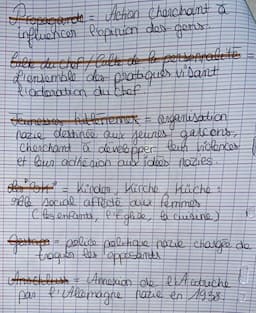 Propagande = Action cherchant à
influencer l'opinion des gens.
Culte du chef / Culte de la personnalité =
L'ensemble des pratiques visant
l'adoration du chef
Jeunesses hitlériennes = organisation
nazie destinée aux jeunes garçons,
cherchant à développer leur violences
et leur adhésion aux idées nazies.
= Kinder, Kirche, Küche :
rôle social affecté aux femmes
(les enfants, l'Eglise, la cuisine)
Gestapo = police politique nazie chargée de
traquer les opposants
Anschluss = Annexion de l'Autriche
par l'Allemagne nazie en 1938.